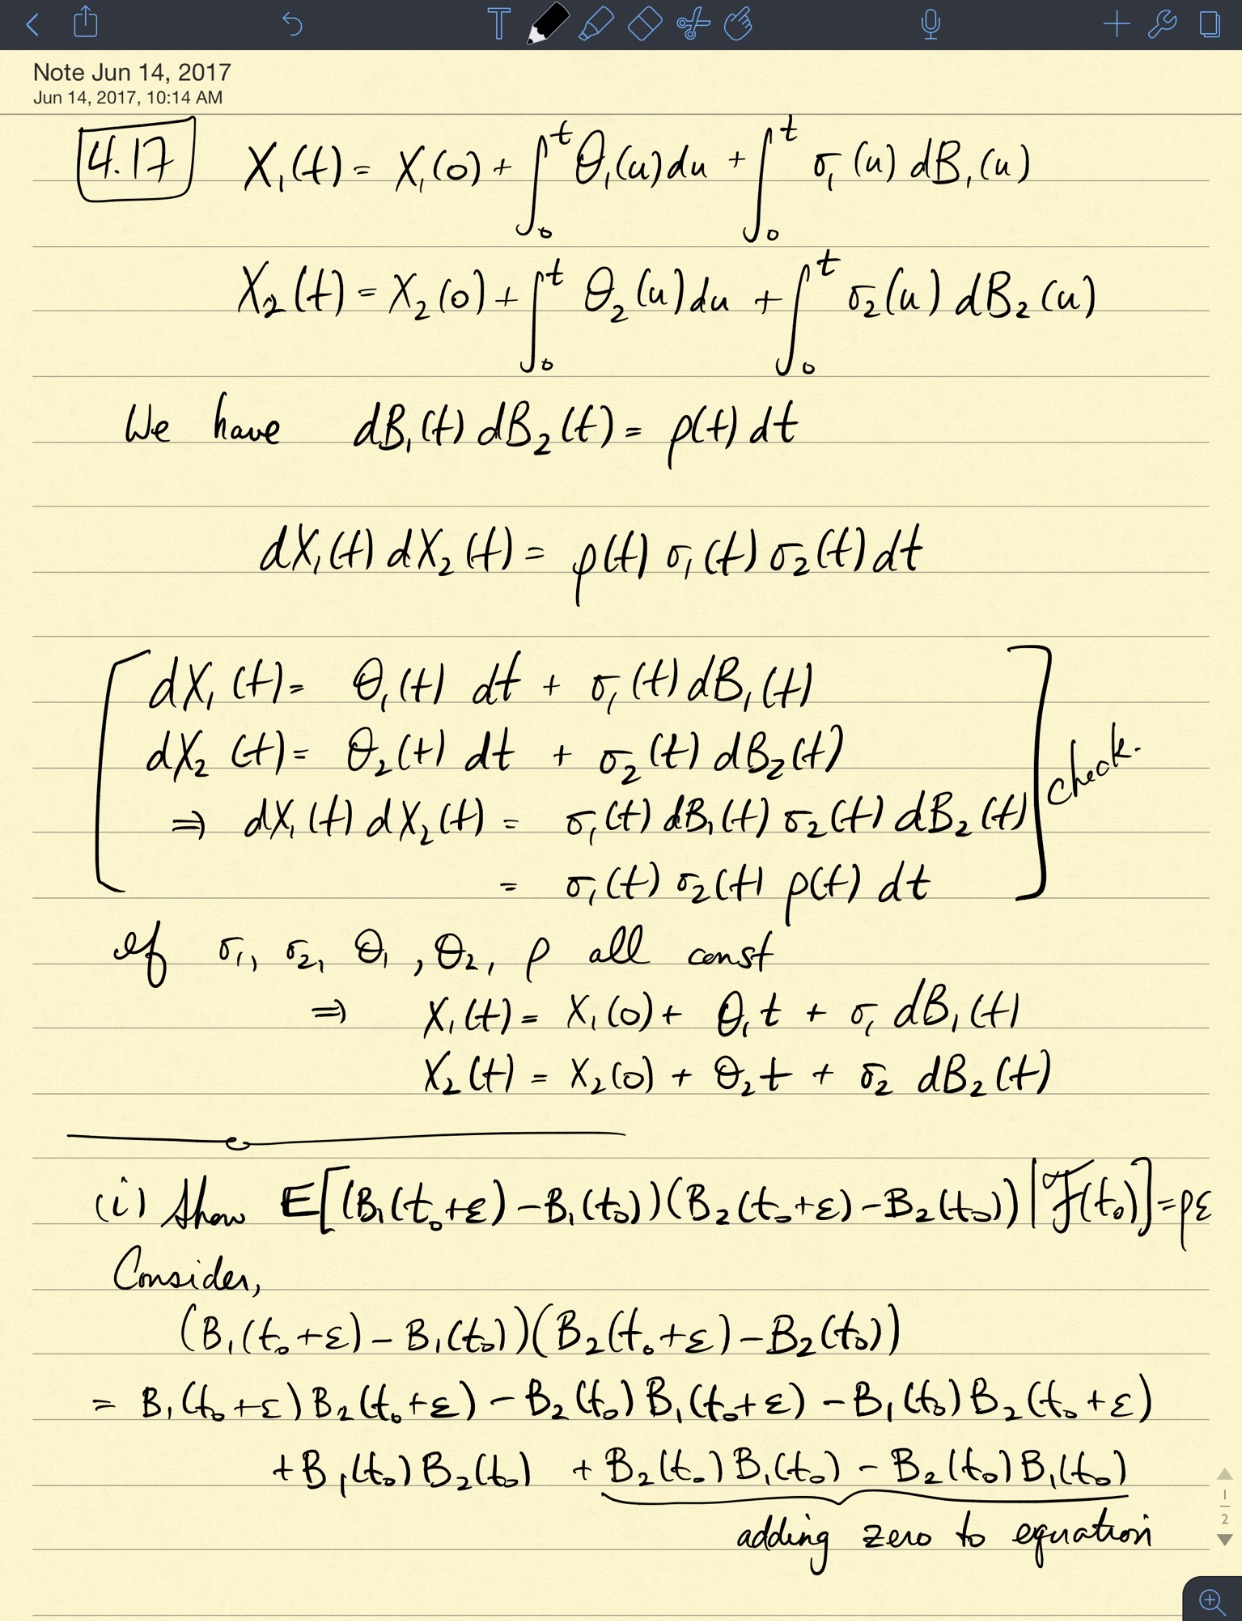 Note Jun 14, 2017
Jun 14, 2017, 10:14 AM
4.17 X₁(t) = X₁(0) + ∫₀ᵗ θ₁(u)du + ∫₀ᵗ σ₁(u) dB₁(u)
X₂(t) = X₂(0) + ∫₀ᵗ θ₂(u)du + ∫₀ᵗ σ₂(u) dB₂(u)
We have dB₁(t) dB₂(t) = ρ(t) dt
dX₁(t) dX₂(t) = ρ(t) σ₁(t) σ₂(t) dt
dX₁(t) = θ₁(t) dt + σ₁(t) dB₁(t)
dX₂(t) = θ₂(t) dt + σ₂(t) dB₂(t)
⇒ dX₁(t) dX₂(t) = σ₁(t) dB₁(t) σ₂(t) dB₂(t)
= σ₁(t) σ₂(t) ρ(t) dt
check.
If σ₁, σ₂, θ₁, θ₂, ρ all const
⇒ X₁(t) = X₁(0) + θ₁t + σ₁ dB₁(t)
X₂(t) = X₂(0) + θ₂t + σ₂ dB₂(t)
(i) Show E[(B₁(t₀+ε) − B₁(t₀))(B₂(t₀+ε) − B₂(t₀)) | ℱ(t₀)] = ρε
Consider,
(B₁(t₀+ε) − B₁(t₀))(B₂(t₀+ε) − B₂(t₀))
= B₁(t₀+ε) B₂(t₀+ε) − B₂(t₀) B₁(t₀+ε) − B₁(t₀) B₂(t₀+ε)
+ B₁(t₀) B₂(t₀) + B₂(t₀) B₁(t₀) − B₂(t₀) B₁(t₀)
adding zero to equation
1
2